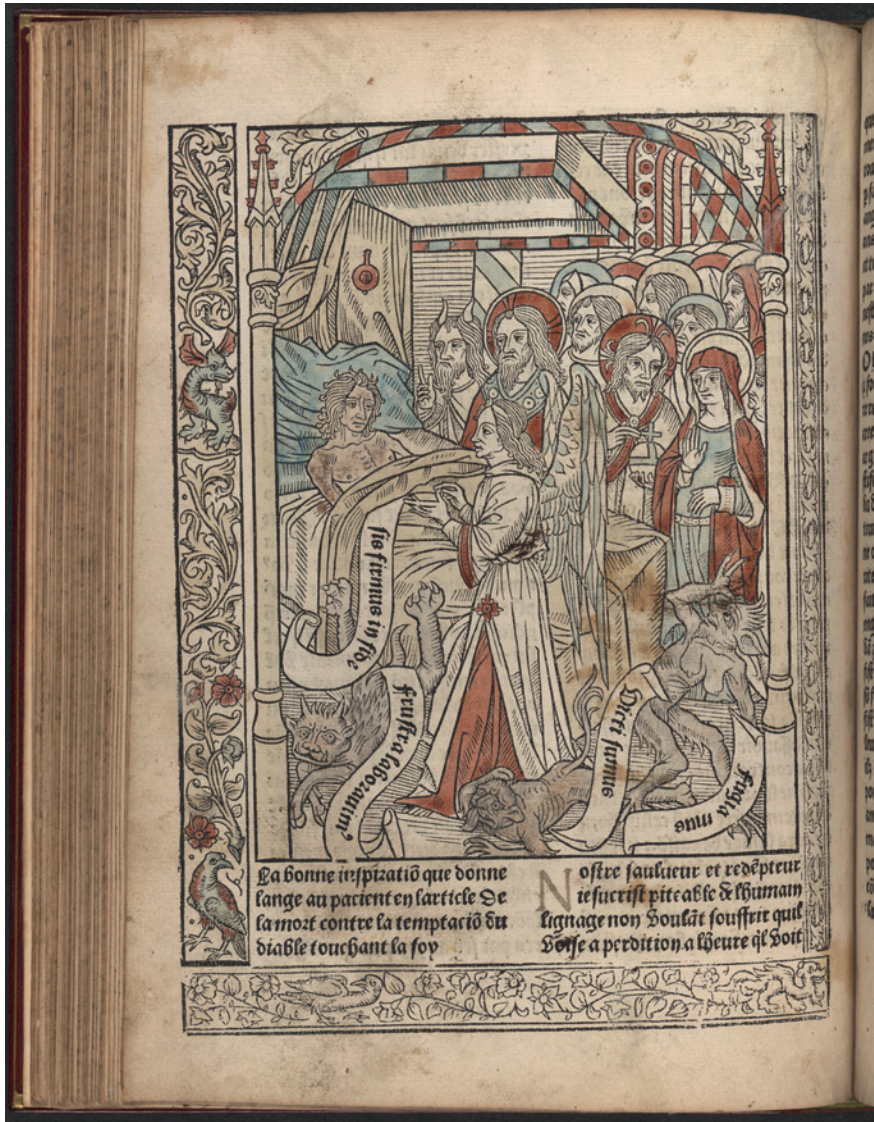 sis firmus in fide
frustra laborauim⁹
Victi sumus
fugia
mus
La bonne inspiratiō que donne
lange au pacient en larticle De
la mort contre la temptaciō du
diable touchant la foy
Nostre saulueur et redēpteur
iesucrist piteable de lhumain
lignage non voulāt souffrir quil
voise a perdition a lheure ql̄ voit